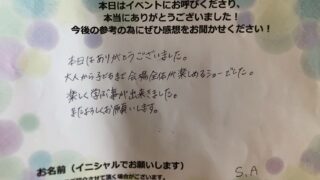 本日はイベントにお呼びくださり、
本当にありがとうございました！
今後の参考の為にぜひ感想をお聞かせください！
本日はありがとうございました。
大人から子どもまで会場全体が楽しめるショーでした。
楽しく学ぶ事が出来きました。
またよろしくお願いします。
お名前（イニシャルでお願いします）
S.A
させて頂く場合がございます。